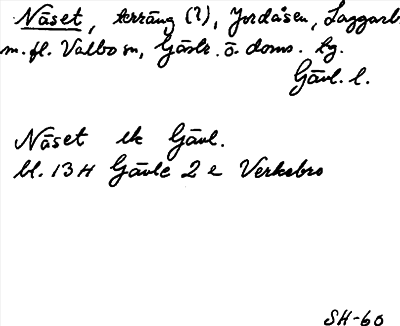 Näset, terräng (?), Jordåsen, Laggarb
m.fl. Valbo sn, Gästr. ö. doms. tg.
Gävl. l.
Näset ek Gävl.
bl. 13 H Gävle 2 e Verkebro
SH-60